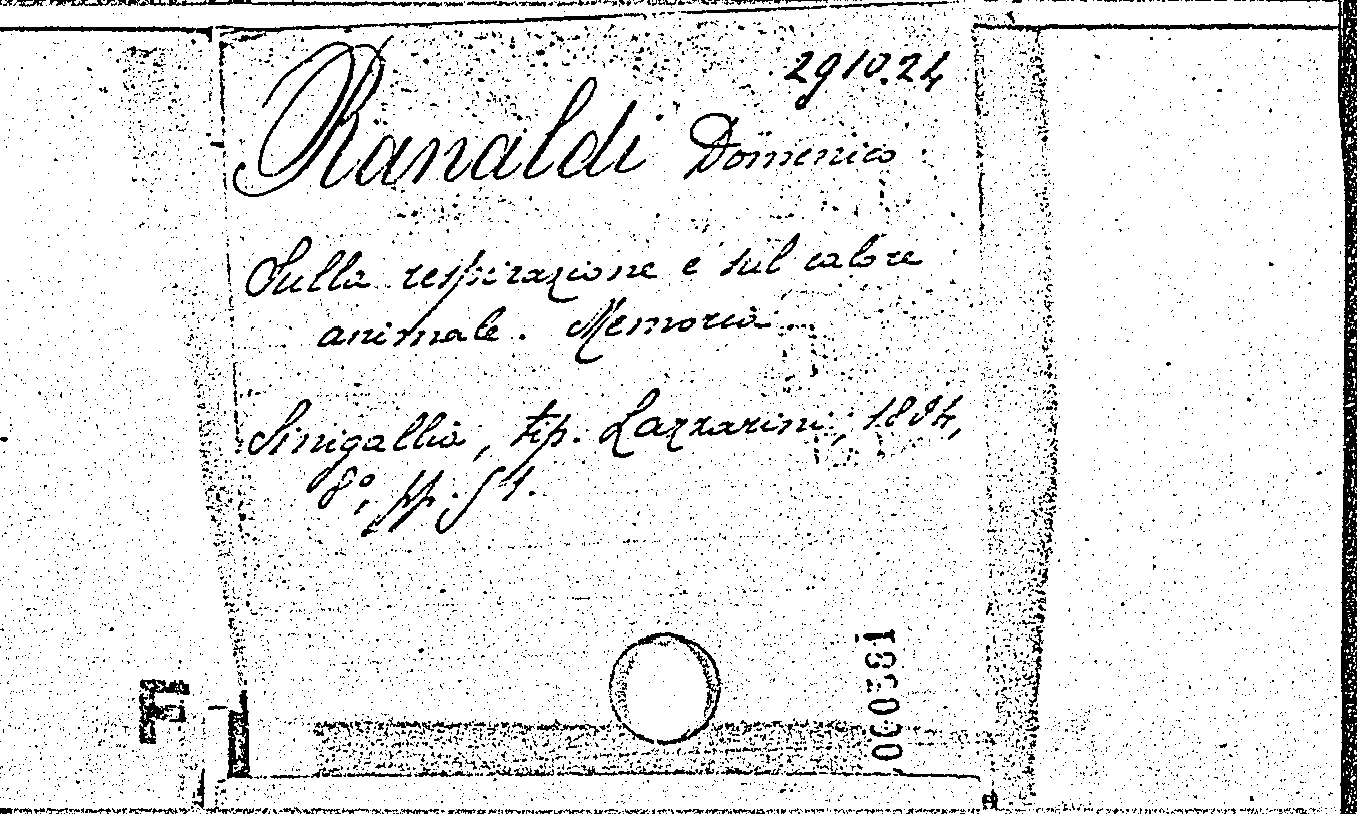 29 10.24
Ranaldi Domenico
Sulla respirazione e sul calore
animale. Memoria
Sinigallia, tip. Lazzarini, 1884,
8°, pp. 54.